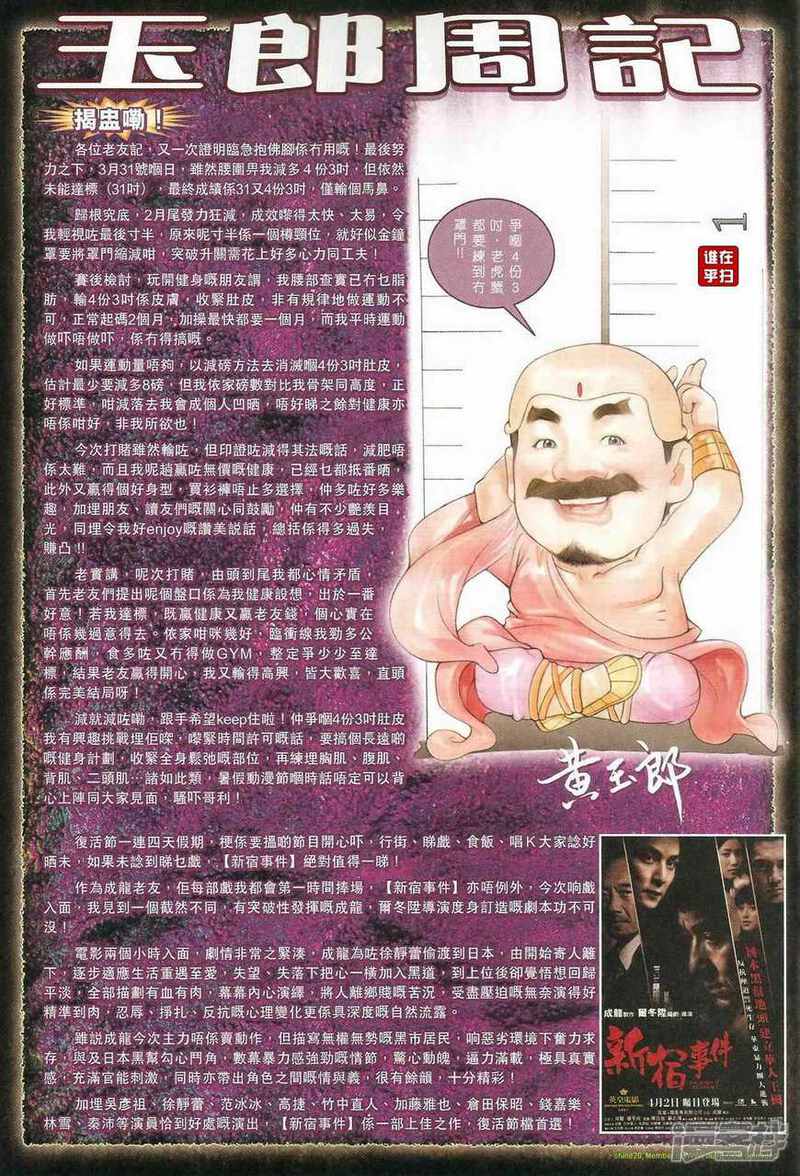 玉郎周記
揭盅嘞！
各位老友記，又一次證明臨急抱佛腳係冇用嘅！最後努
力之下，3月31號嗰日，雖然腰圍畀我減多４份3吋，但依然
未能達標（31吋），最終成績係31又4份3吋，僅輸個馬鼻。
歸根究底，2月尾發力狂減，成效嚟得太快、太易，令
我輕視咗最後寸半，原來呢寸半係一個樽頸位，就好似金鐘
罩要將罩門縮減咁，突破升關需花上好多心力同工夫！
賽後檢討，玩開健身嘅朋友講，我腰部查實已冇乜脂
肪，輸4份3吋係皮膚，收緊肚皮，非有規律地做運動不
可，正常起碼2個月，加操最快都要一個月，而我平時運動
做吓唔做吓，係冇得搞嘅。
如果運動量唔夠，以減磅方法去消滅嗰4份3吋肚皮，
估計最少要減多8磅，但我依家磅數對比我骨架同高度，正
好標準，咁減落去我會成個人凹晒，唔好睇之餘對健康亦
唔係咁好，非我所欲也！
今次打賭雖然輸咗，但印證咗減得其法嘅話，減肥唔
係太難，而且我呢趟贏咗無價嘅健康，已經乜都抵番晒，
此外又贏得個好身型，買衫褲唔止多選擇，仲多咗好多樂
趣，加埋朋友、讀友們嘅關心同鼓勵，仲有不少艷羨目
光，同埋令我好enjoy嘅讚美説話，總括係得多過失，
賺凸!!
老實講，呢次打賭，由頭到尾我都心情矛盾，
首先老友們提出呢個盤口係為我健康設想，出於一番
好意！若我達標，既贏健康又贏老友錢，個心實在
唔係幾過意得去。依家咁咪幾好，臨衝線我勁多公
幹應酬，食多咗又冇得做GYM，整定爭少少至達
標，結果老友贏得開心，我又輸得高興，皆大歡喜，直頭
係完美結局呀！
減就減咗嘞，跟手希望keep住啦！仲爭嗰4份3吋肚皮
我有興趣挑戰埋佢㗎，嚟緊時間許可嘅話，要搞個長遠啲
嘅健身計劃，收緊全身鬆弛嘅部位，再練埋胸肌、腹肌、
背肌、二頭肌…諸如此類，暑假動漫節嗰時話唔定可以背
心上陣同大家見面，騷吓哥利！
復活節一連四天假期，梗係要搵啲節目開心吓，行街、睇戲、食飯、唱Ｋ大家諗好
晒未，如果未諗到睇乜戲，【新宿事件】絕對值得一睇！
作為成龍老友，佢每部戲我都會第一時間捧場，【新宿事件】亦唔例外，今次响戲
入面，我見到一個截然不同，有突破性發揮嘅成龍，爾冬陞導演度身訂造嘅劇本功不可
沒！
電影兩個小時入面，劇情非常之緊湊，成龍為咗徐靜蕾偷渡到日本，由開始寄人籬
下，逐步適應生活重遇至愛，失望、失落下把心一橫加入黑道，到上位後卻覺悟想回歸
平淡，全部描劃有血有肉，幕幕內心演繹，將人離鄉賤嘅苦況，受盡壓迫嘅無奈演得好
精準到肉，忍辱、掙扎、反抗嘅心理變化更係具深度嘅自然流露。
雖説成龍今次主力唔係賣動作，但描寫無權無勢嘅黑市居民，响惡劣環境下奮力求
存，與及日本黑幫勾心鬥角，數幕暴力感強勁嘅情節，驚心動魄，逼力滿載，極具真實
感，充滿官能刺激，同時亦帶出角色之間嘅情與義，很有餘韻，十分精彩！
加埋吳彥祖、徐靜蕾、范冰冰、高捷、竹中直人、加藤雅也、倉田保昭、錢嘉樂、
林雪、秦沛等演員恰到好處嘅演出，【新宿事件】係一部上佳之作，復活節檔首選！
爭嗰4份3
吋，老虎蟹
都要練到冇
罩門!!
1
谁在
乎扫
黃玉郎
成龍 製作 爾冬陞 編劇/導演
新宿事件
英皇電影
4月2日 矚目登場
漫客栈